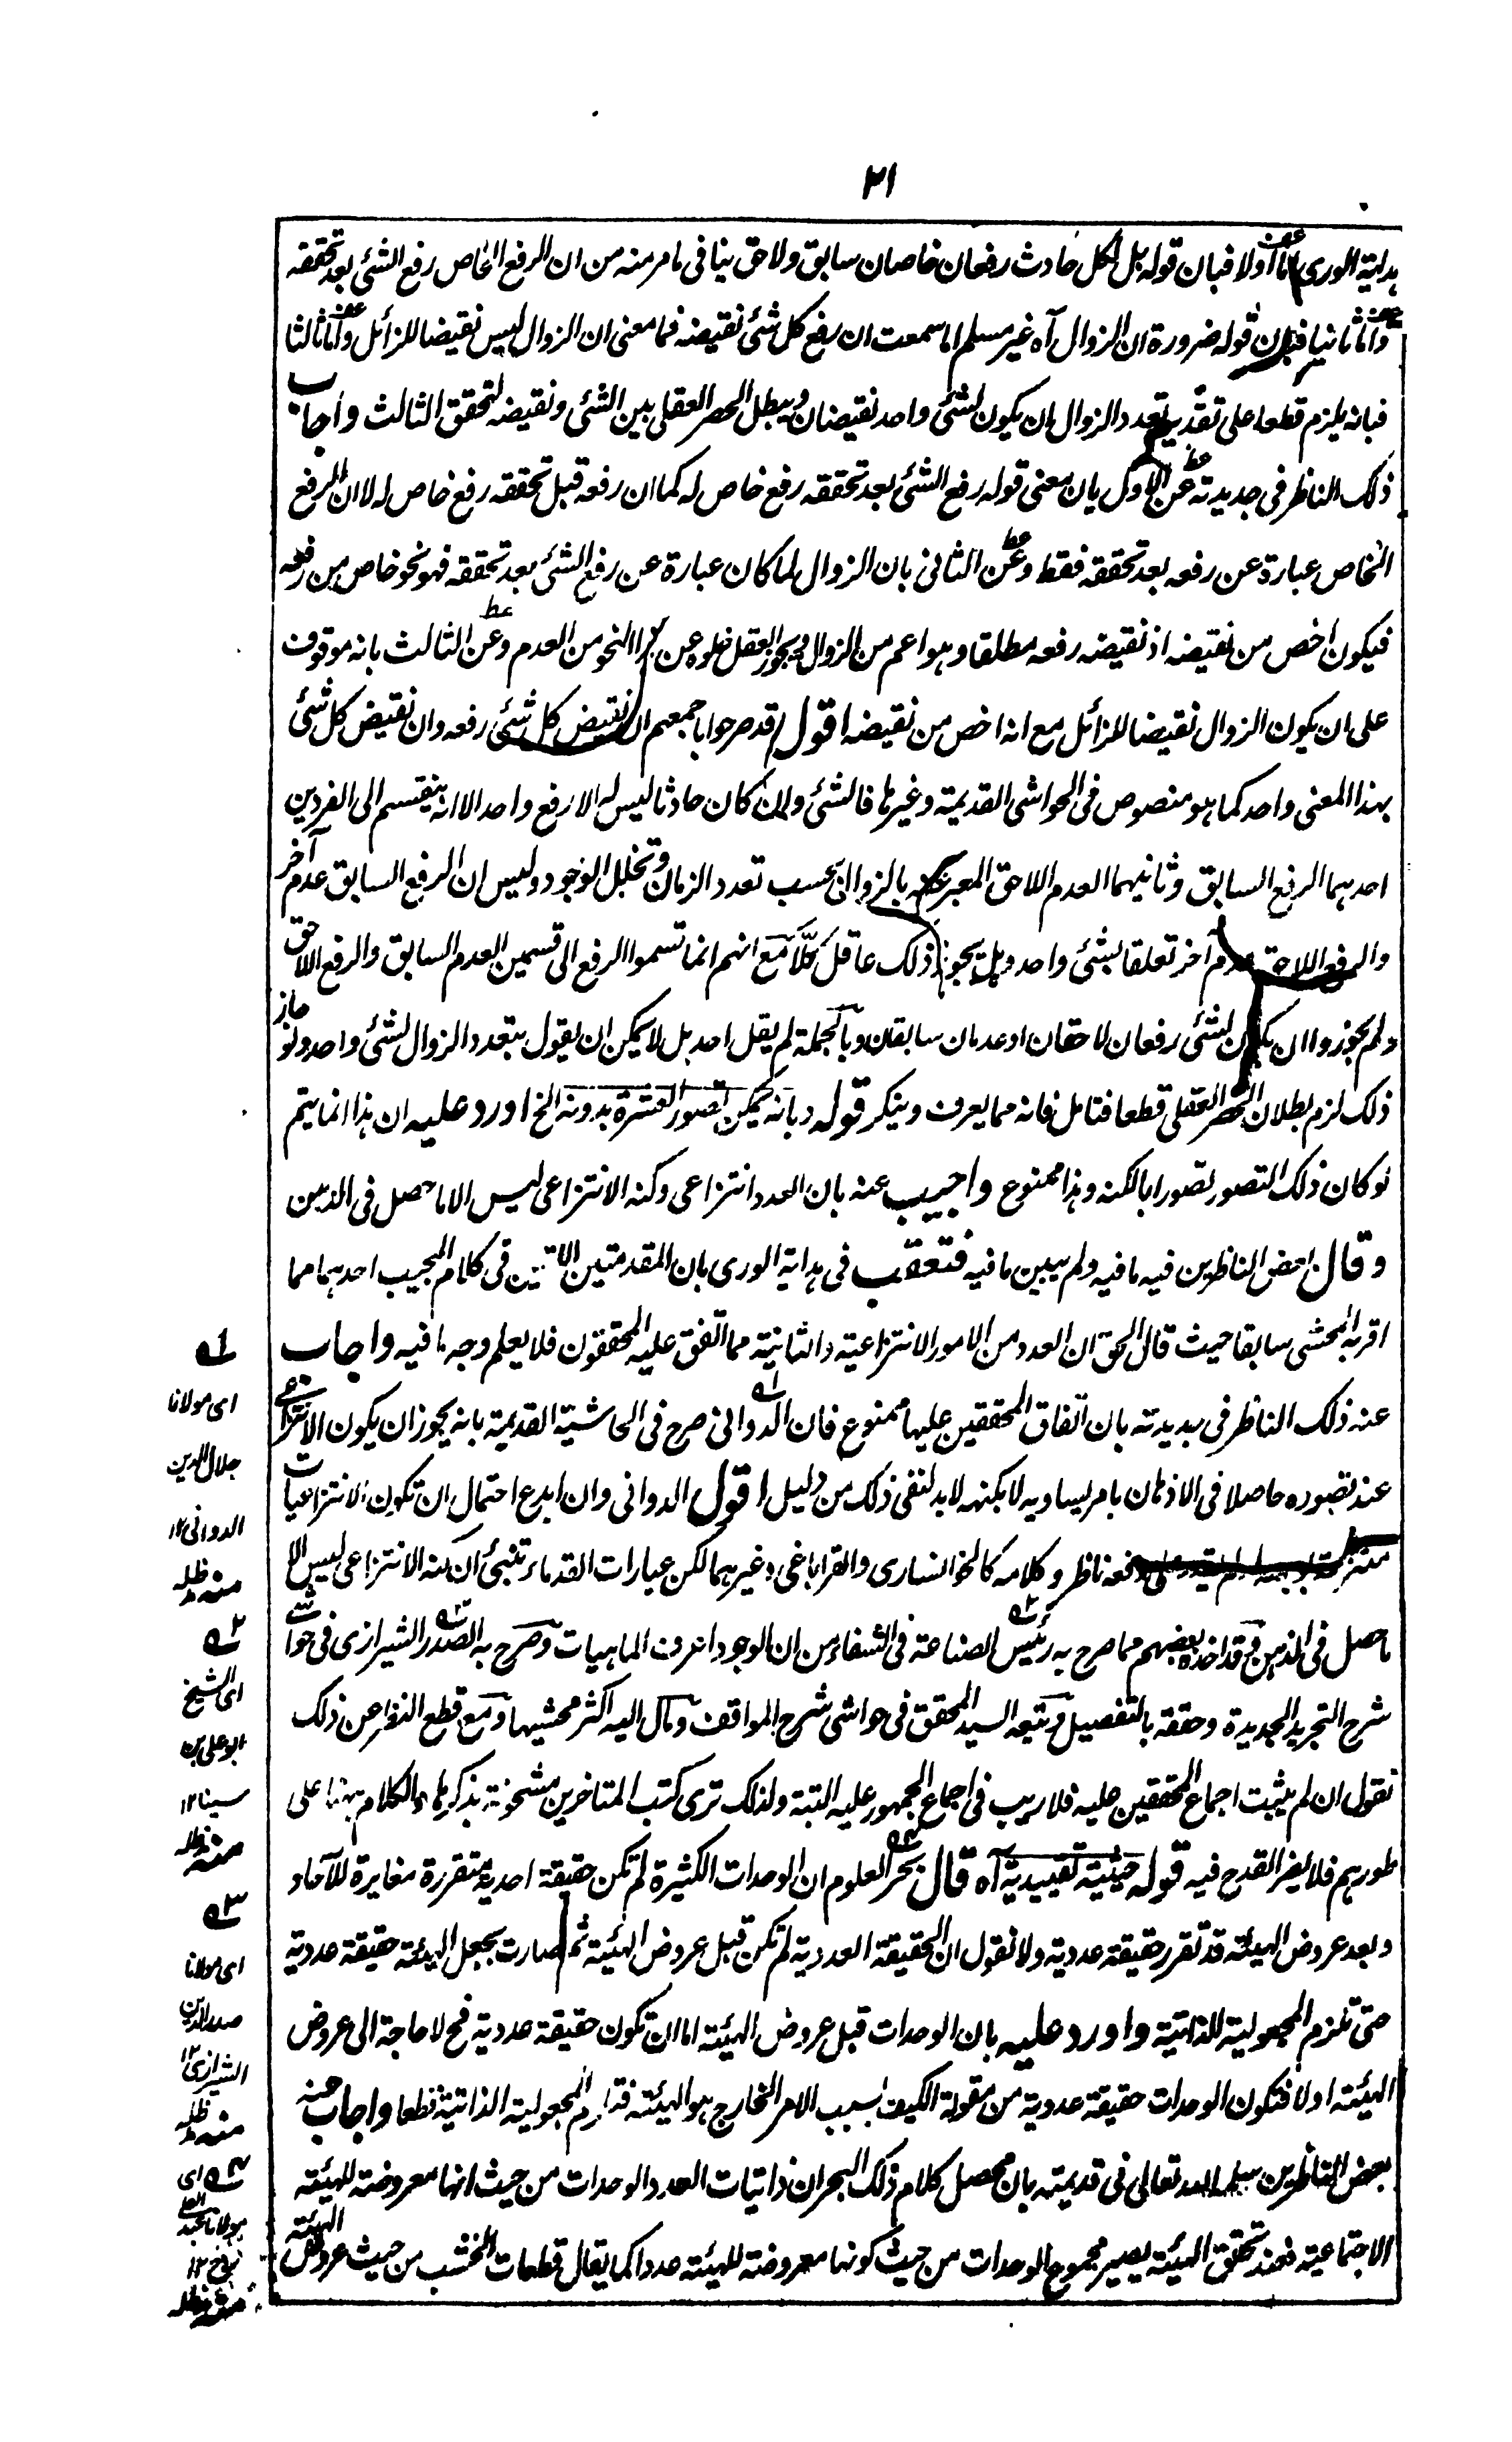 ٢١
هداية الورى اما اولا فبان قوله بل لكل حادث رفعان خاصان سابق ولاحق ينافى مامر منه من ان الرفع الخاص رفع الشئ بعد تحققه
واما ثانيا فبان قوله ضرورة ان الزوال آه غير مسلم اما سمعت ان رفع كل شئ نقيضه فما معنى ان الزوال ليس نقيضا للزائل واما ثالثا
فبانه يلزم قطعا على تقدير تعدد الزوال ان يكون لشئ واحد نقيضان ويبطل الحصر العقلى بين الشئ ونقيضه لتحقق الثالث واجاب
ذلك الناظر فى جديدته عن الاول بان معنى قوله رفع الشئ بعد تحققه رفع خاص له كما ان رفعه قبل تحققه رفع خاص له لا ان الرفع
الخاص عبارة عن رفعه بعد تحققه فقط وعن الثانى بان الزوال لما كان عبارة عن رفع الشئ بعد تحققه فهو نحو خاص من رفعه
فيكون اخص من نقيضه اذ نقيضه رفعه مطلقا وهو اعم من الزوال ويجوز العقل خلوه عن هذا النحو من العدم وعن الثالث بانه موقوف
على ان يكون الزوال نقيضا للزائل مع انه اخص من نقيضه اقول قد صرحوا باجمعهم ان نقيض كل شئ رفعه وان نقيض كل شئ
بهذا المعنى واحد كما هو منصوص فى الحواشى القديمة وغيرها فالشئ وان كان حادثا ليس له الا رفع واحد الا انه ينقسم الى الفردين
احدهما الرفع السابق وثانيهما العدم اللاحق المعبر عنه بالزوال بحسب تعدد الزمان وتخلل الوجود وليس ان الرفع السابق عدم آخر
والرفع اللاحق عدم اخر تعلقا بشئ واحد وهل يجوز ذلك عاقل كلا مع انهم انما قسموا الرفع الى قسمين العدم السابق والرفع اللاحق
ولم يجوزوا ان يكون لشئ رفعان لاحقان او عدمان سابقان وبالجملة لم يقل احد بل لا يمكن ان يقول بتعدد الزوال لشئ واحد ولو جاز
ذلك لزم بطلان الحصر العقلى قطعا فتامل فانه مما يعرف وينكر قوله وبانه يمكن تصور العشرة بدونه الخ اورد عليه ان هذا انما يتم
لو كان ذلك التصور تصورا بالكنه وهذا ممنوع واجيب عنه بان العدد انتزاعى وكنه الانتزاعى ليس الا ما حصل فى الذهن
وقال بعض الناظرين فيه ما فيه ولم يبين ما فيه فتعقب فى هداية الورى بان المقدمتين فى كلام المجيب احدهما مما
اقر به المحشى سابقا حيث قال الحق ان العدد من الامور الانتزاعية والثانية مما اتفق عليه المحققون فلا يعلم وجه ما فيه واجاب
عنه ذلك الناظر فى جديدته بان اتفاق المحققين عليها ممنوع فان الدوانى صرح فى الحاشية القديمة بانه يجوز ان يكون الانتزاعى
عند تصوره حاصلا فى الاذهان بامر يساويه لا بكنهه لا بد لنفى ذلك من دليل اقول الدوانى وان ابدع احتمال ان تكون الانتزاعيات
منتزعة بوجهه لم يقدر على دفعه ناظر وكلامه كالخوانسارى والقراباغى وغيرهما لكن عبارات القدماء تنبئ ان كنه الانتزاعى ليس الا
ما حصل فى الذهن قد اخذه بعضهم مما صرح به رئيس الصناعة فى الشفاء من ان الوجود اعرف الماهيات وصرح به الصدر الشيرازى فى حواشى
شرح التجريد الجديدة وحققه بالتفصيل وتبعه السيد المحقق فى حواشى شرح المواقف ومال اليه اكثر محشيها ومع قطع النظر عن ذلك
نقول ان لم يثبت اجماع المحققين عليه فلا ريب فى اجماع الجمهور عليه البتة ولذلك ترى كتب المتاخرين مشحونة بذكرها والكلام ههنا على
طورهم فلا يضر القدح فيه قوله حيثية تقييدية آه قال بحر العلوم ان الوحدات الكثيرة لم تكن حقيقة احدية متقررة مغايرة للآحاد
وبعد عروض الهيئة قد تقرر حقيقة عددية ولا نقول ان الحقيقة العددية لم تكن قبل عروض الهيئة ثم صارت بجعل الهيئة حقيقة عددية
حتى تلزم المجعولية الذاتية واورد عليه بان الوحدات قبل عروض الهيئة اما ان تكون حقيقة عددية فح لا حاجة الى عروض
الهيئة او لا فتكون الوحدات حقيقة عددية من مقولة الكيف بسبب الامر الخارج هو الهيئة فتلزم المجعولية الذاتية قطعا واجاب عنه
بعض الناظرين سلمه الله تعالى فى قديمته بان محصل كلام ذلك البحر ان ذاتيات العدد الوحدات من حيث انها معروضة للهيئة
الاجتماعية فعند تحقق الهيئة يصير مجموع الوحدات من حيث كونها معروضة للهيئة عددا كما يقال قطعات الخشب من حيث عروض الهيئة
١ه
اى مولانا
جلال الدين
الدوانى ١٢
منه مد ظله
٢ه
اى الشيخ
ابو على بن
سينا ١٢
منه مد ظله
٣ه
اى مولانا
صدر الدين
الشيرازى ١٢
منه مد ظله
٤ه اى
مولانا عبد العلى
منه مد ظله